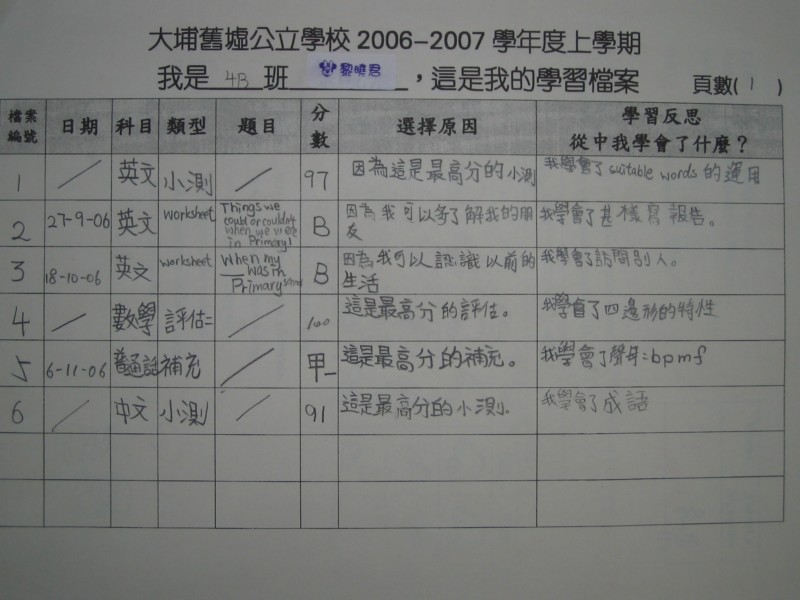 大埔舊墟公立學校 2006-2007 學年度上學期
我是 4B 班 黎曉君 ,這是我的學習檔案 頁數( 1 )
檔案編號 日期 科目 類型 題目 分數 選擇原因 學習反思 從中我學會了什麼?
1 / 英文 小測 / 97 因為這是最高分的小測 我學會了suitable words的運用
2 27-9-06 英文 worksheet Things we could or couldn't when we were in Primary 1 B 因為我可以多了解我的朋友 我學會了甚樣寫報告。
3 18-10-06 英文 worksheet When my ___ was in Primary school B 因為我可以認識以前的生活 我學會了訪問別人。
4 / 數學 評估二 / 100 這是最高分的評估。 我學會了四邊形的特性
5 6-11-06 普通話 補充 / 甲- 這是最高分的補充。 我學會了聲母:bpmf
6 / 中文 小測 / 91 這是最高分的小測。 我學會了成語